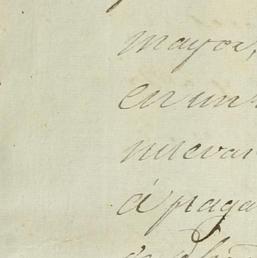 mayor,
en un
nueva
á paga